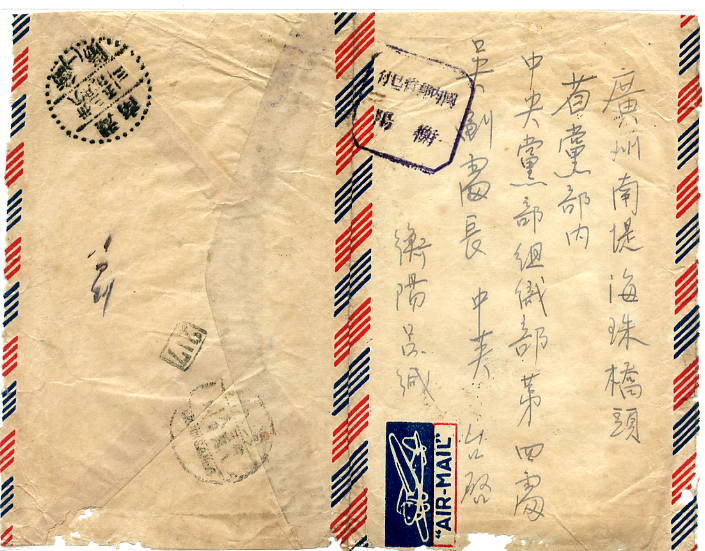 廣州南堤海珠橋頭
省黨部內
中央黨部組織部第四處
吳副處長 中英 台啓
衡陽呂緘
國內郵資已付
衡陽
"AIR-MAIL"